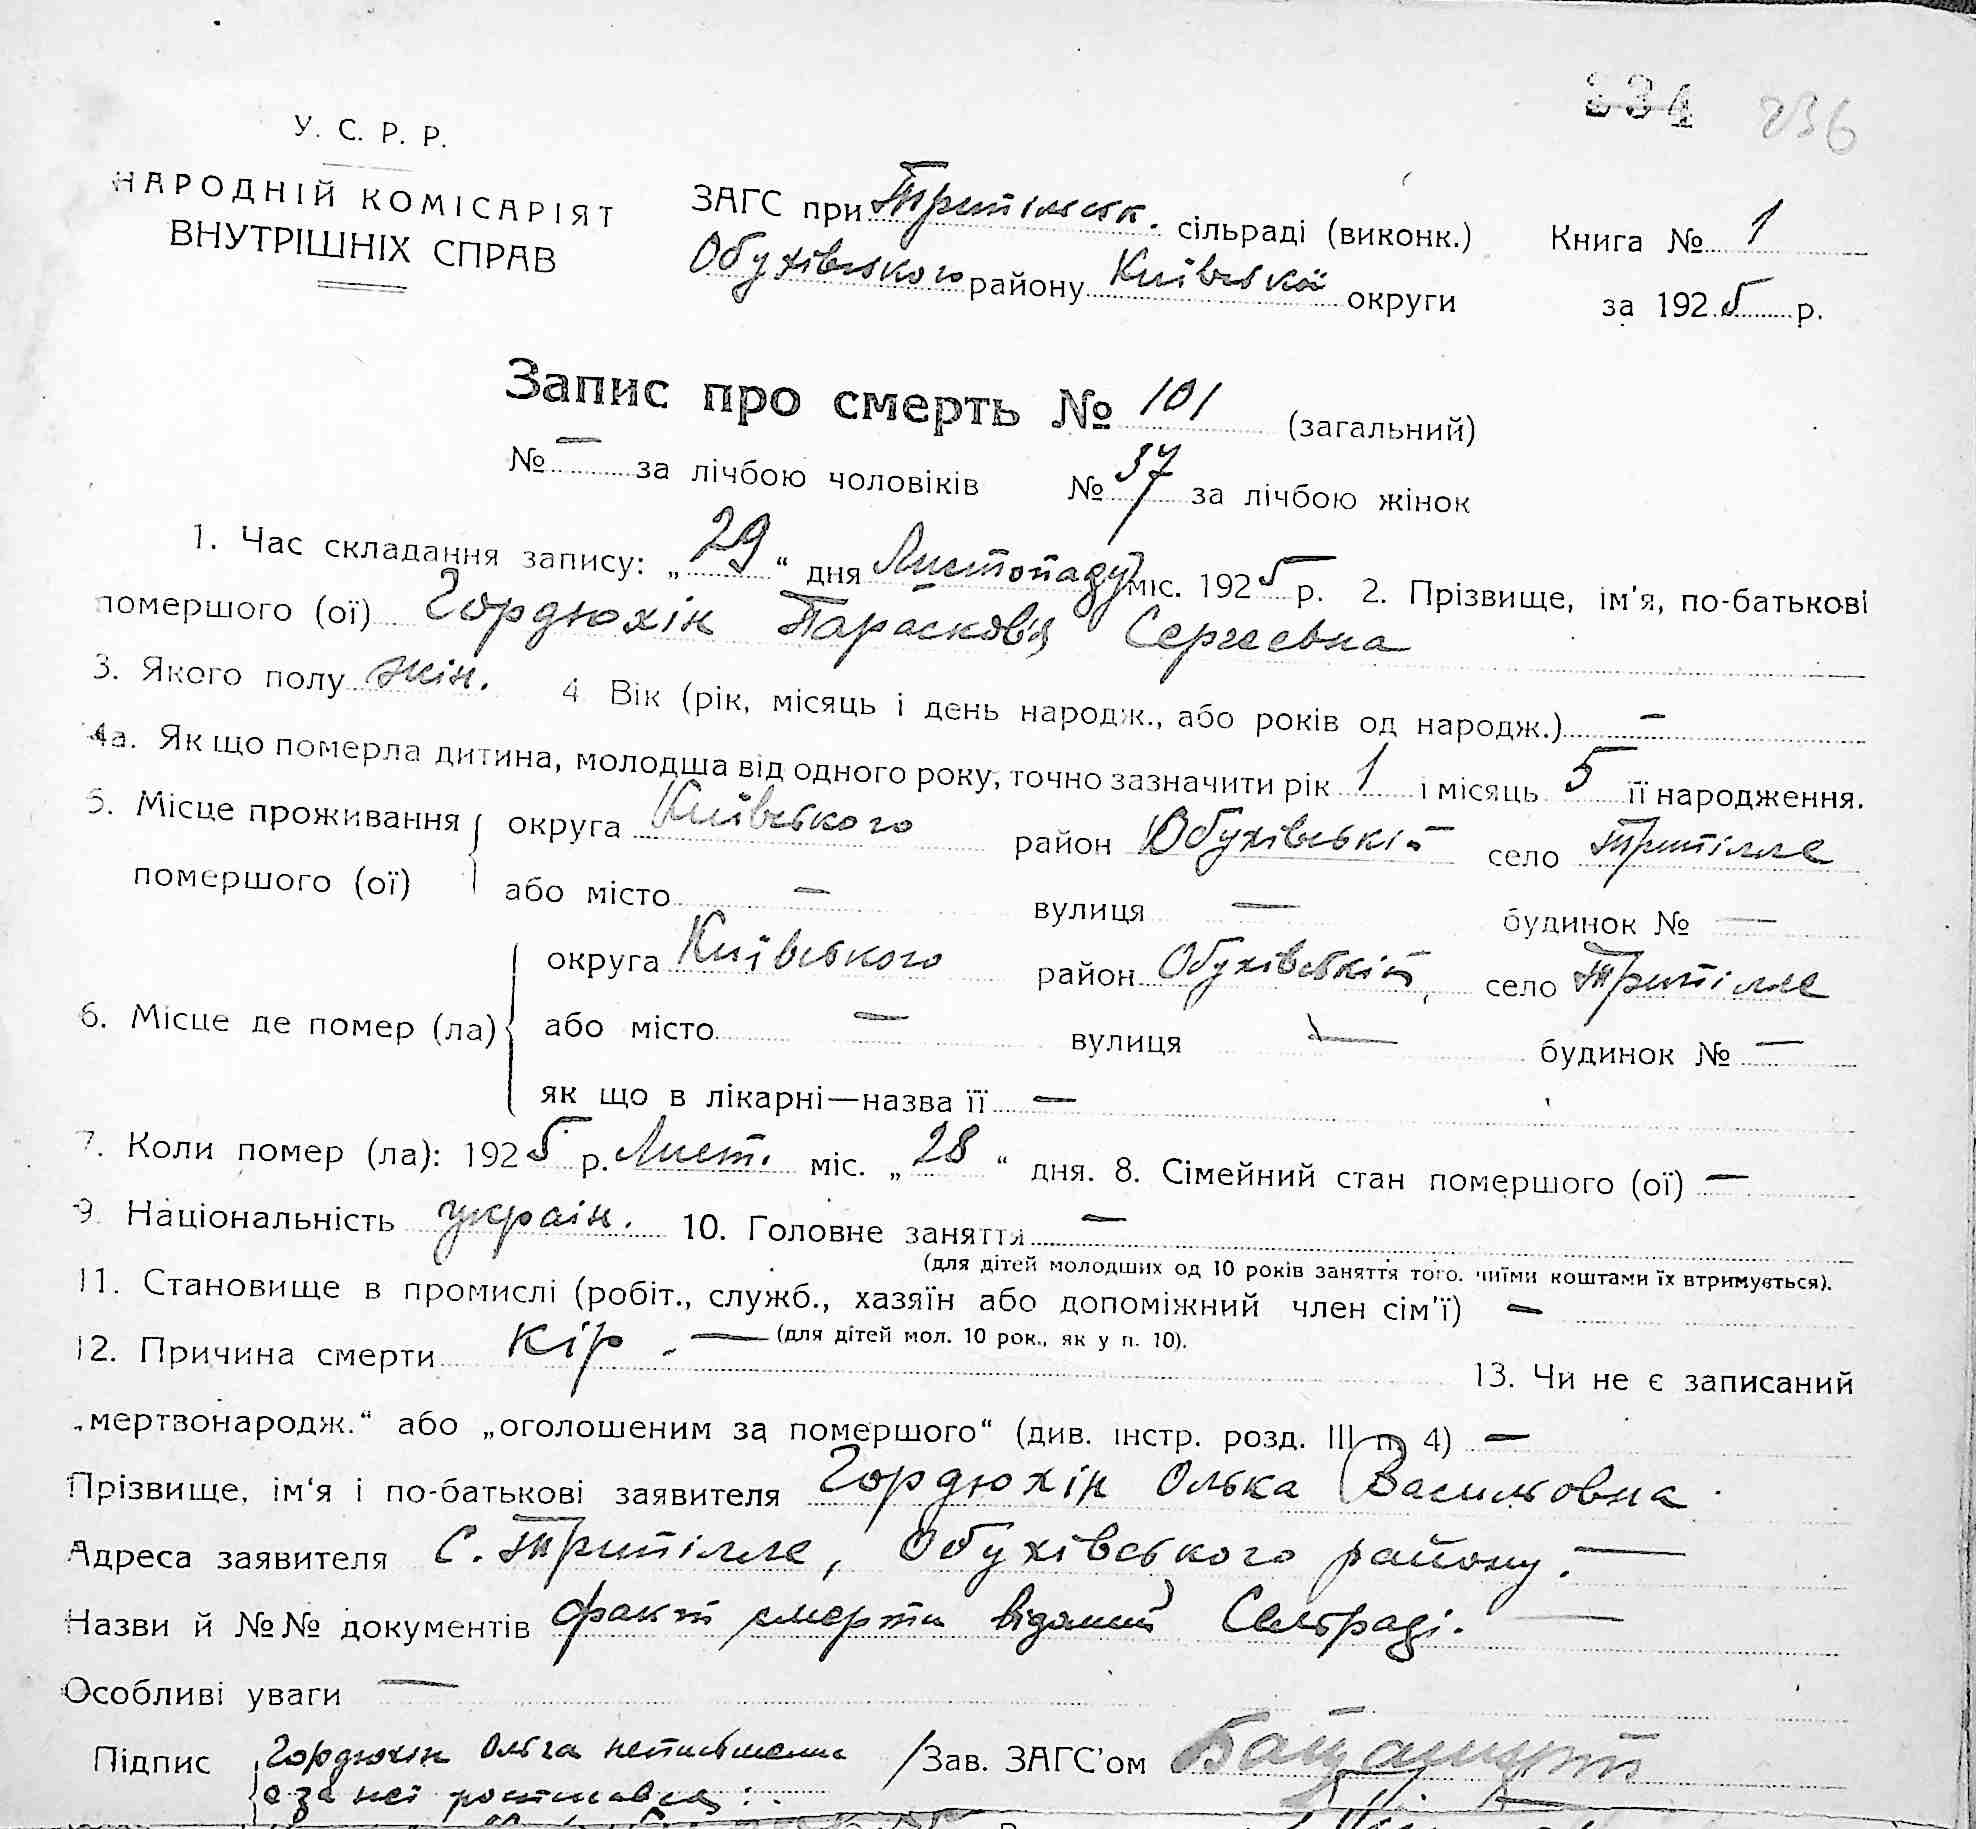 234 236
У. С. Р. Р.
НАРОДНІЙ КОМІСАРІЯТ
ВНУТРІШНІХ СПРАВ
ЗАГС при Трипільськ. сільраді (виконк.) Книга № 1
Обухівського району Київської округи за 1925 р.
Запис про смерть № 101 (загальний)
№ — за лічбою чоловіків № 37 за лічбою жінок
1. Час складання запису: „29“ дня Листопаду міс. 1925 р. 2. Прізвище, ім'я, по-батькові
помершого (ої) Гордюхін Парасковія Сергеевна
3. Якого полу жін. 4 Вік (рік, місяць і день народж., або років од народж.) —
4а. Як що померла дитина, молодша від одного року, точно зазначити рік 1 і місяць 5 її народження.
5. Місце проживання округа Київського район Обухівський село Трипілле
помершого (ої) або місто — вулиця — будинок № —
округа Київського район Обухівський, село Трипілле
6. Місце де помер (ла) або місто — вулиця — будинок № —
як що в лікарні—назва її —
7. Коли помер (ла): 1925 р. Лист. міс. „28“ дня. 8. Сімейний стан помершого (ої) —
9 Національність україн. 10. Головне заняття —
(для дітей молодших од 10 років заняття того. чиїми коштами їх втримується).
11. Становище в промислі (робіт., служб., хазяїн або допоміжний член сім'ї) —
(для дітей мол. 10 рок., як у п. 10).
12. Причина смерти кір. — 13. Чи не є записаний
„мертвонародж.“ або „оголошеним за помершого“ (див. інстр. розд. III п. 4) —
Прізвище, ім'я і по-батькові заявителя Гордюхін Олька Васильовна
Адреса заявителя С. Трипілле, Обухівського району. —
Назви й №№ документів факт смерти відомий Сельраді. —
Особливі уваги —
Підпис Гордюхін Ольга неписьменна / Зав. ЗАГС'ом
а за неї росписався: